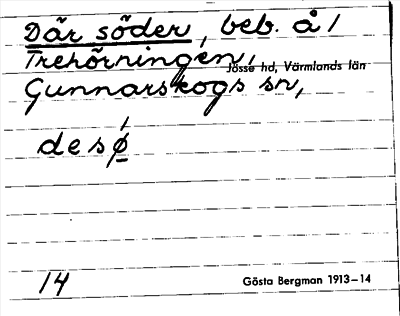 Där söder, beb. å /
Trehörningen,
Jösse hd, Värmlands län
Gunnarskogs sn,
desǿ̱
14
Gösta Bergman 1913–14